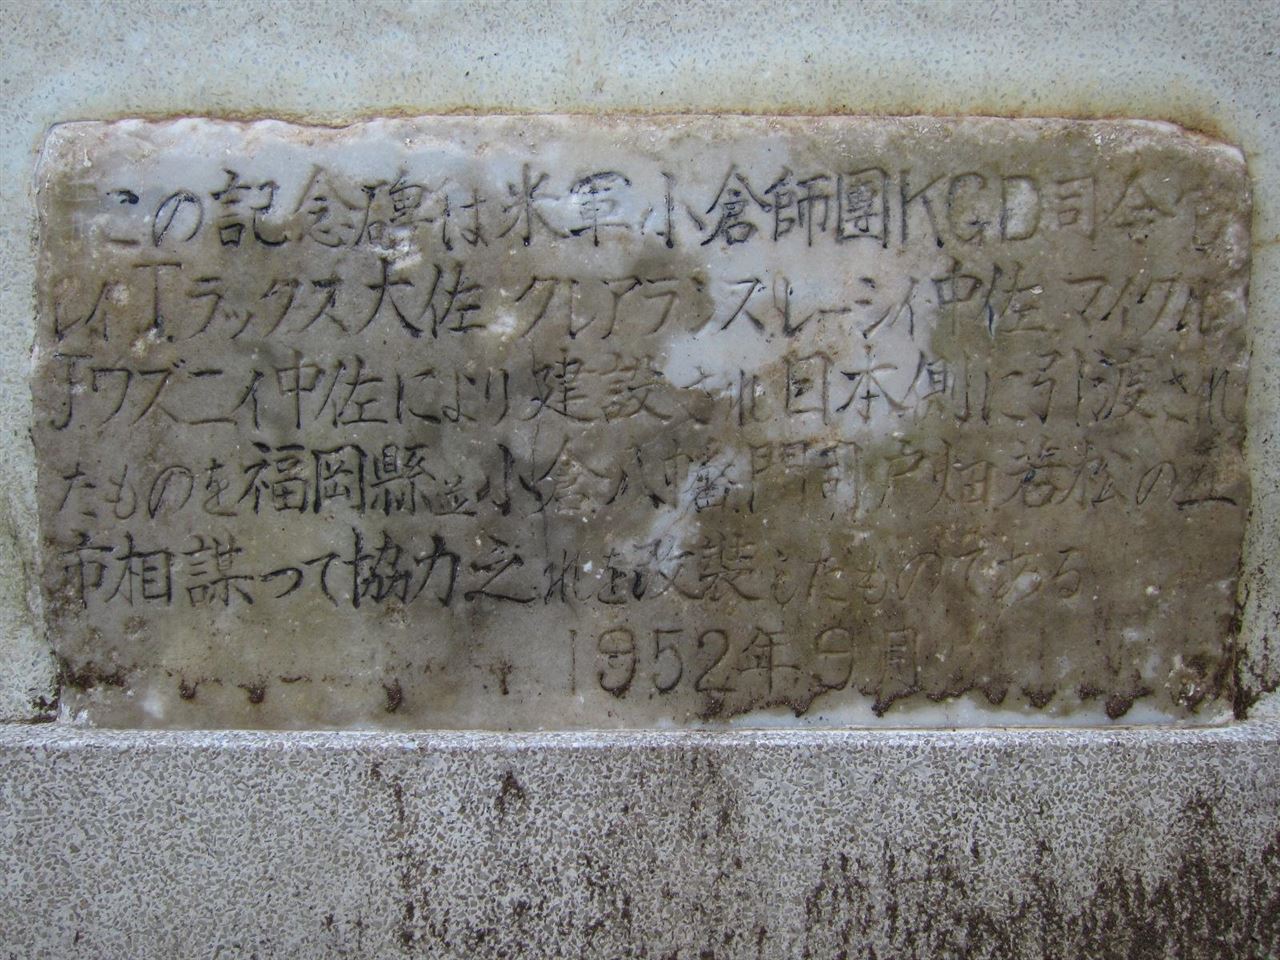 この記念碑は米軍小倉師團KGD司令官
レイT.ラックス大佐 クレアランスレーシイ中佐 マイクル
J.ワズニイ中佐により建設され日本側に引渡され
たものを福岡縣並小倉八幡門司戸畑若松の五
市相謀って協力之れを改装したものである
1952年9月